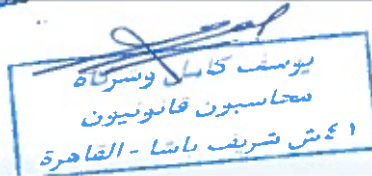 يوسف كامل وشركاه
محاسبون قانونيون
١٤ش شريف باشا - القاهرة